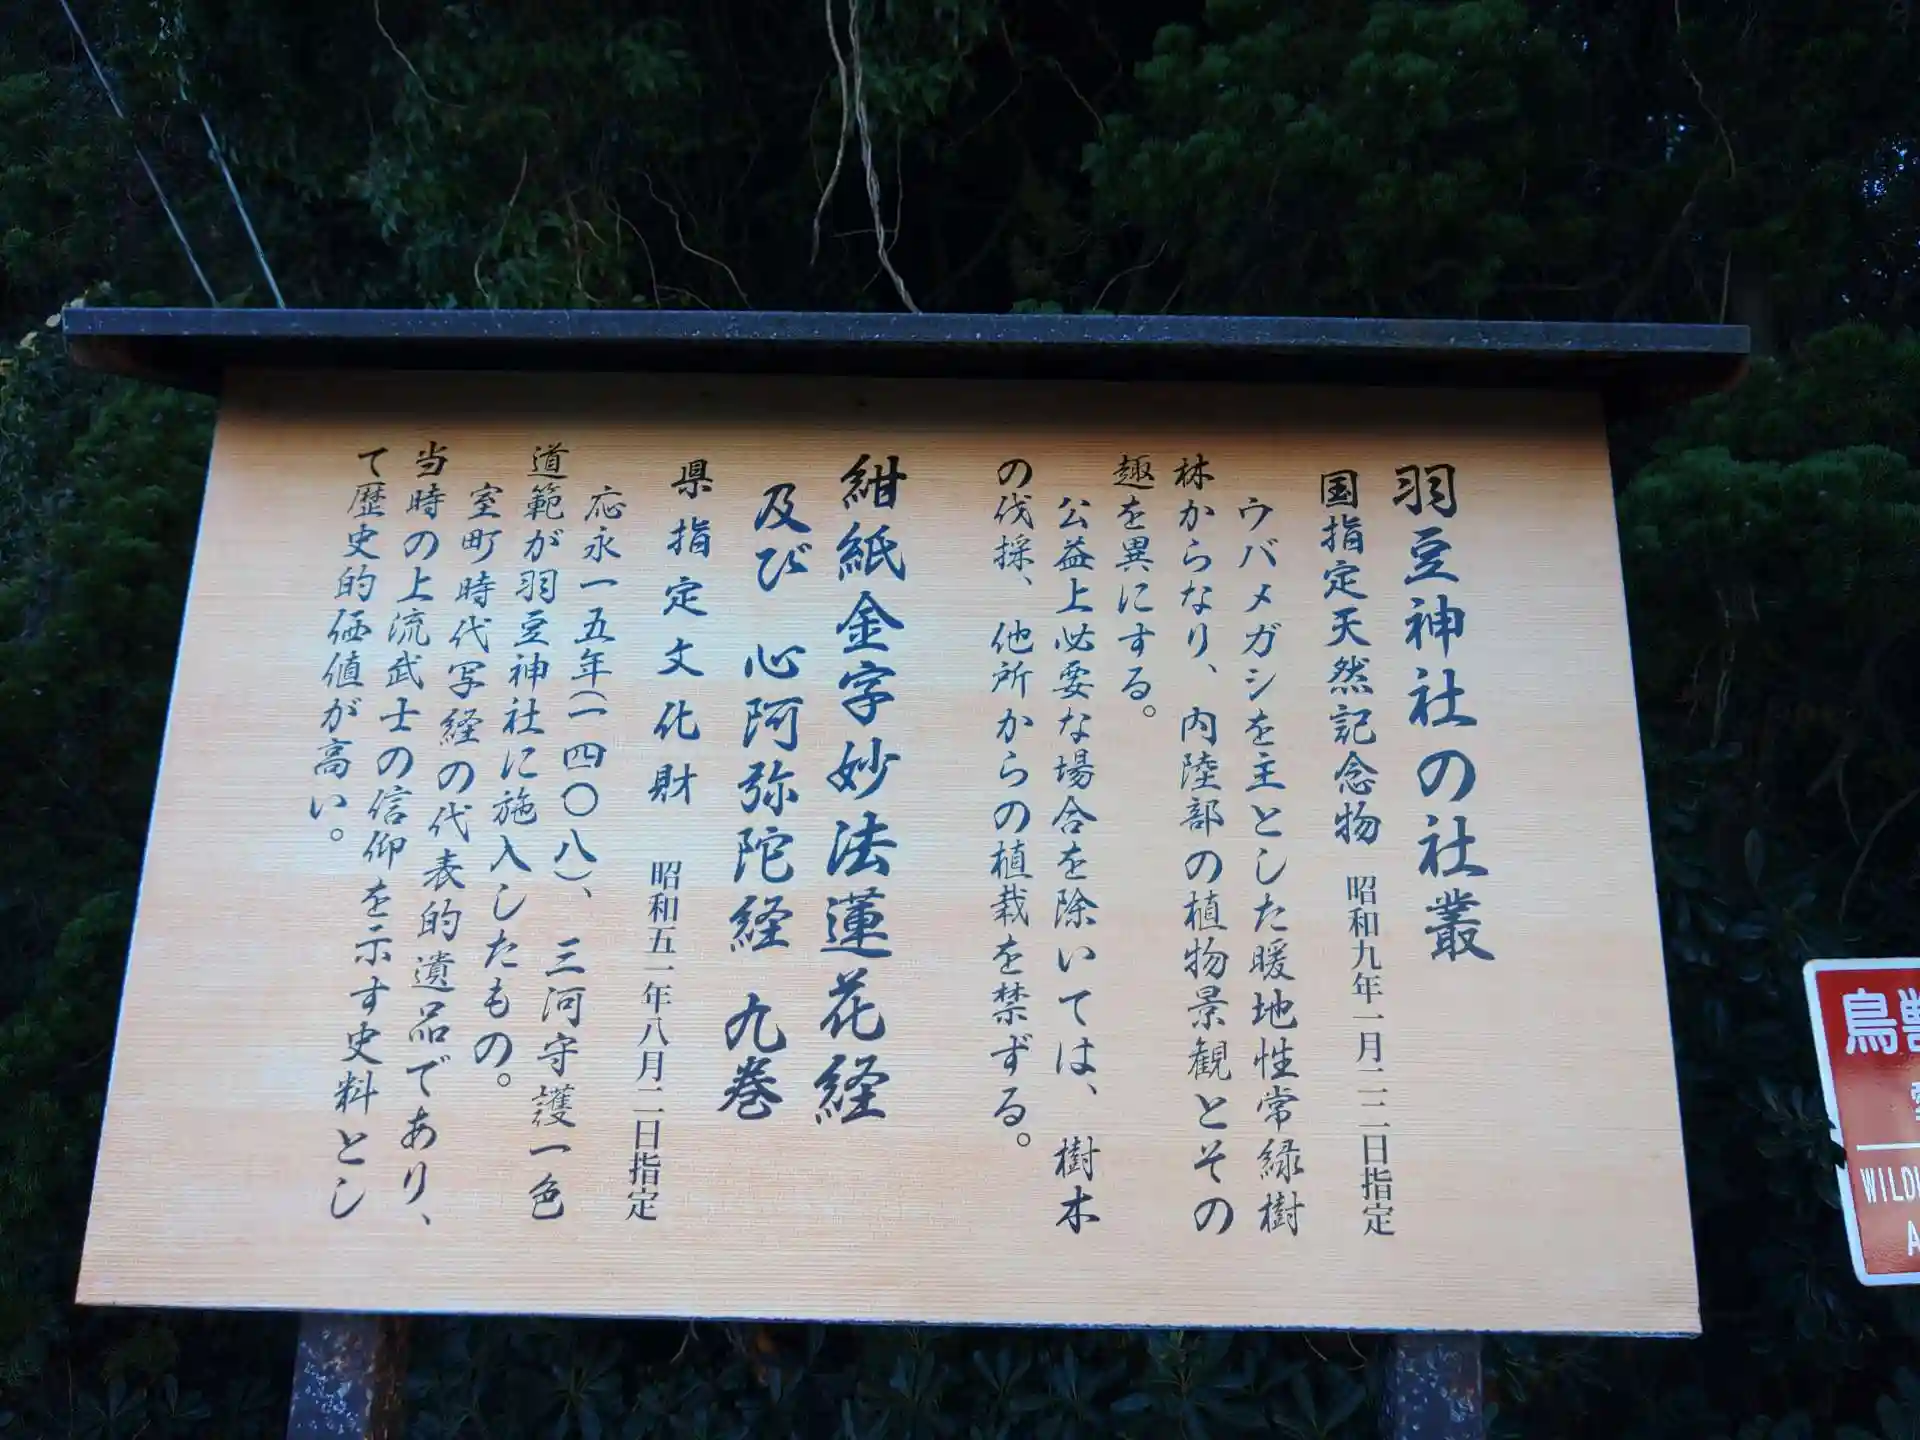 羽豆神社の社叢
国指定天然記念物 昭和九年一月二二日指定
ウバメガシを主とした暖地性常緑樹
林からなり、内陸部の植物景観とその
趣を異にする。
公益上必要な場合を除いては、樹木
の伐採、他所からの植栽を禁ずる。
紺紙金字妙法蓮花経
及び 心阿弥陀経 九巻
県指定文化財 昭和五一年八月二日指定
応永一五年(一四〇八)、三河守護一色
道範が羽豆神社に施入したもの。
室町時代写経の代表的遺品であり、
当時の上流武士の信仰を示す史料とし
て歴史的価値が高い。
鳥獣